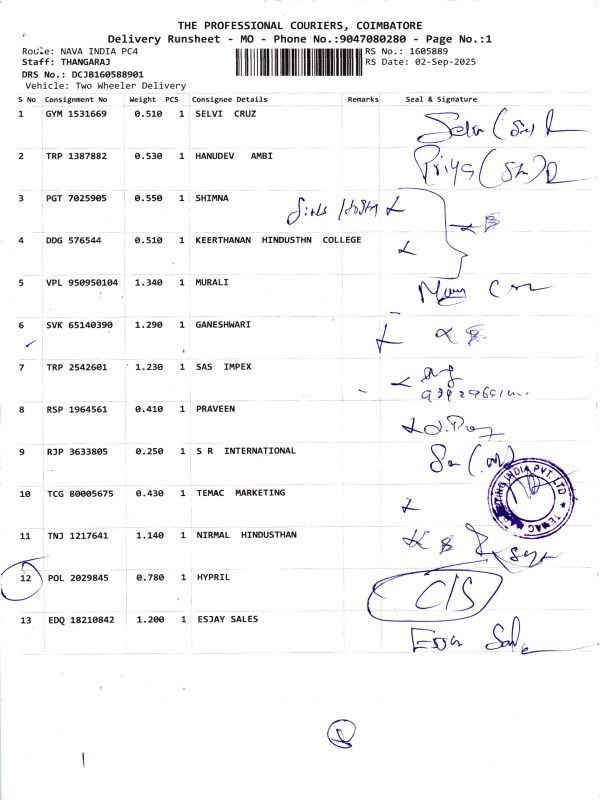 THE PROFESSIONAL COURIERS, COIMBATORE
Delivery Runsheet - MO - Phone No.:9047080280 - Page No.:1
Route: NAVA INDIA PC4 RS No.: 1605889
Staff: THANGARAJ RS Date: 02-Sep-2025
DRS No.: DCJB160588901
Vehicle: Two Wheeler Delivery
S No Consignment No Weight PCS Consignee Details Remarks Seal & Signature
1 GYM 1531669 0.510 1 SELVI CRUZ
2 TRP 1387882 0.530 1 HANUDEV AMBI Priya
3 PGT 7025905 0.550 1 SHIMNA
4 DDG 576544 0.510 1 KEERTHANAN HINDUSTHN COLLEGE
5 VPL 950950104 1.340 1 MURALI
6 SVK 65140390 1.290 1 GANESHWARI
7 TRP 2542601 1.230 1 SAS IMPEX
8 RSP 1964561 0.410 1 PRAVEEN
9 RJP 3633805 0.250 1 S R INTERNATIONAL
10 TCG 80005675 0.430 1 TEMAC MARKETING
11 TNJ 1217641 1.140 1 NIRMAL HINDUSTHAN
12 POL 2029845 0.780 1 HYPRIL C/S
13 EDQ 18210842 1.200 1 ESJAY SALES